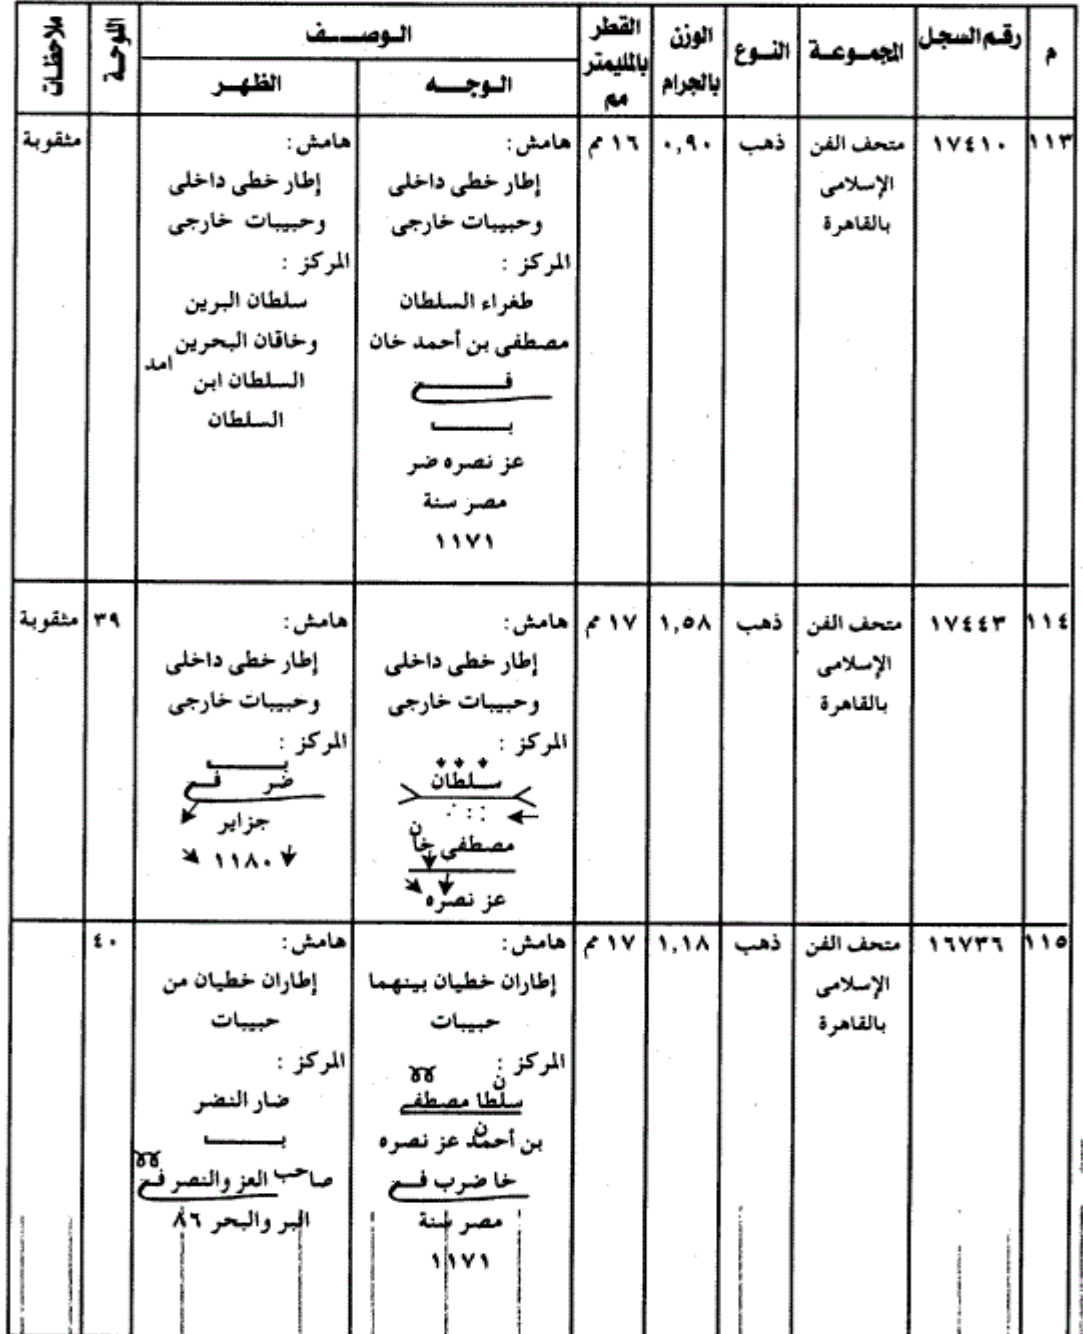 م
رقم السجل
المجموعة
النوع
الوزن
بالجرام
القطر
بالمليمتر
مم
الوصف
الوجه
الظهر
اللوحة
ملاحظات
١١٣
١٧٤١٠
متحف الفن
الإسلامى
بالقاهرة
ذهب
٠,٩٠
١٦ مم
هامش:
إطار خطى داخلى
وحبيبات خارجى
المركز :
طغراء السلطان
مصطفى بن أحمد خان
فـــــــى
بـــــــ
عز نصره ضر
مصر سنة
١١٧١
هامش:
إطار خطى داخلى
وحبيبات خارجى
المركز :
سلطان البرين
وخاقان البحرين
امد
السلطان ابن
السلطان
مثقوبة
١١٤
١٧٤٤٣
متحف الفن
الإسلامى
بالقاهرة
ذهب
١,٥٨
١٧ مم
هامش:
إطار خطى داخلى
وحبيبات خارجى
المركز :
سلطان
مصطفى خان
عز نصره
هامش:
إطار خطى داخلى
وحبيبات خارجى
المركز :
ضر فى
جزاير
١١٨٠
٣٩
مثقوبة
١١٥
١٦٧٣٦
متحف الفن
الإسلامى
بالقاهرة
ذهب
١,١٨
١٧ مم
هامش:
إطاران خطيان بينهما
حبيبات
المركز :
ن
سلطا مصطفى
ن
بن أحمد عز نصره
خا ضرب فى
مصر سنة
١١٧١
هامش:
إطاران خطيان من
حبيبات
المركز :
ضار النضر
بـــــــ
صاحب العز والنصر فى
البر والبحر ٨٦
٤٠